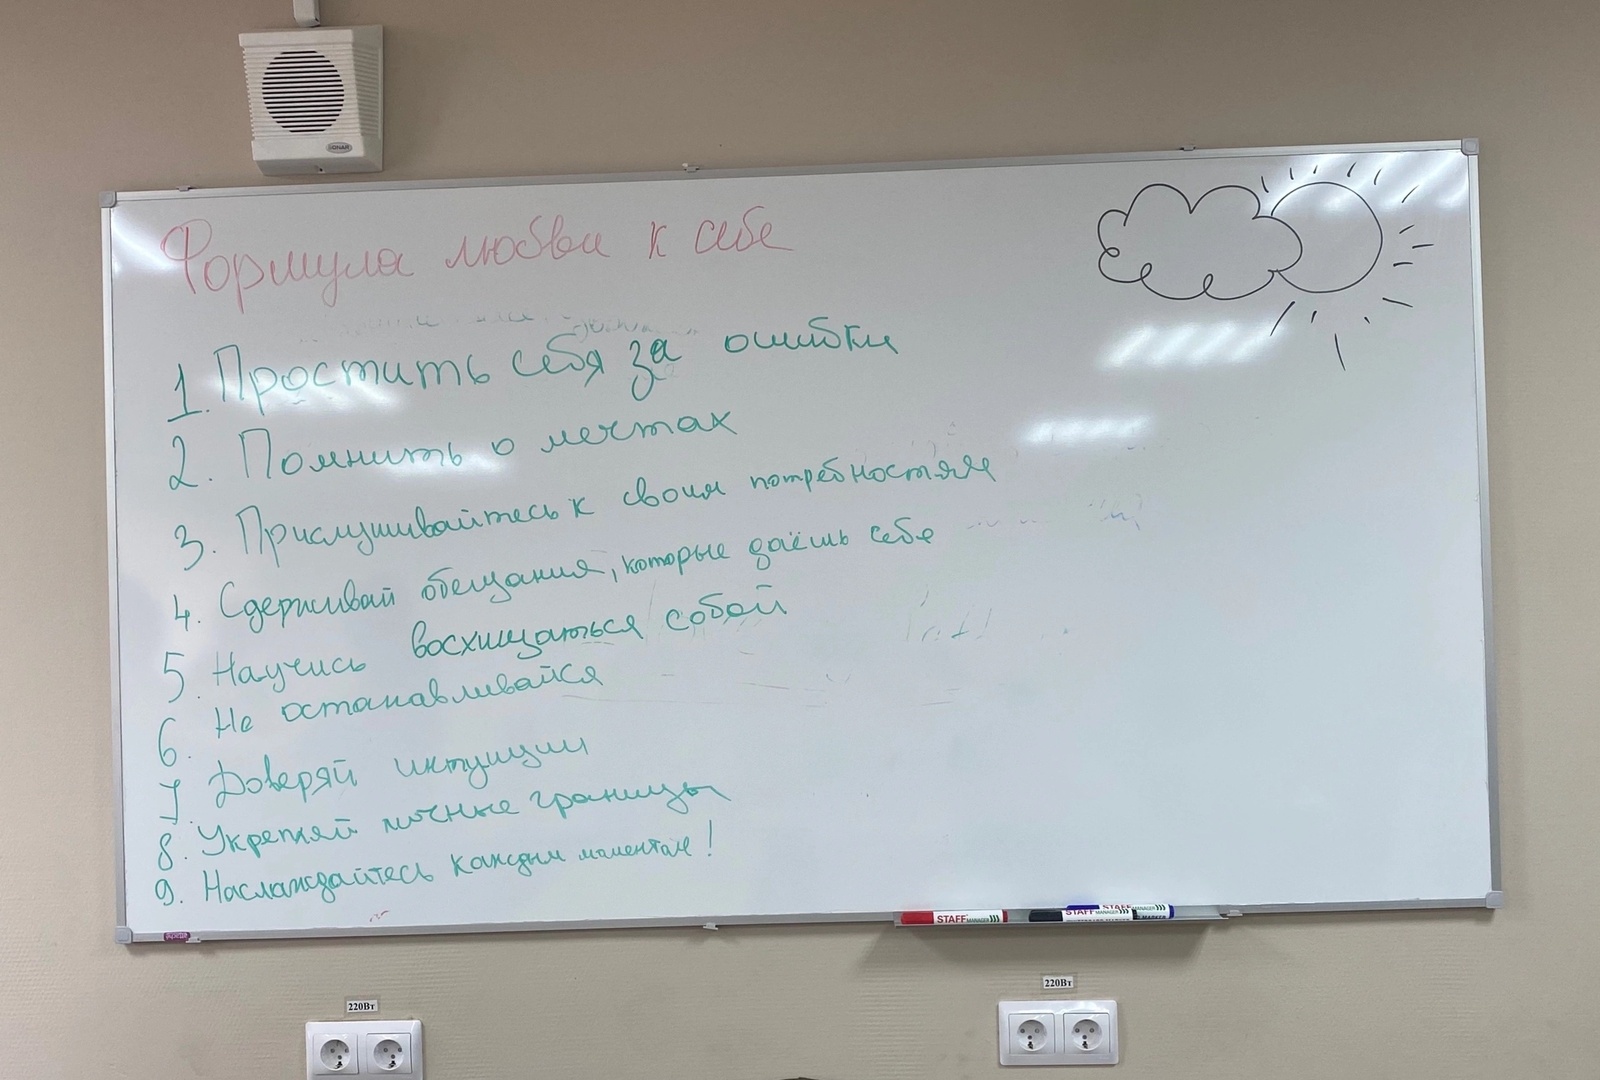 SONAR
Формула любви к себе
1. Простить себя за ошибки
2. Помнить о мечтах
3. Прислушивайтесь к своим потребностям
4. Сдерживай обещания, которые даёшь себе
5. Научись восхищаться собой
6. Не останавливайся
7. Доверяй интуиции
8. Укрепляй личные границы
9. Наслаждайтесь каждым моментом!
STAFF MANAGER STAFF MANAGER STAFF MANAGER
220Вт
220Вт